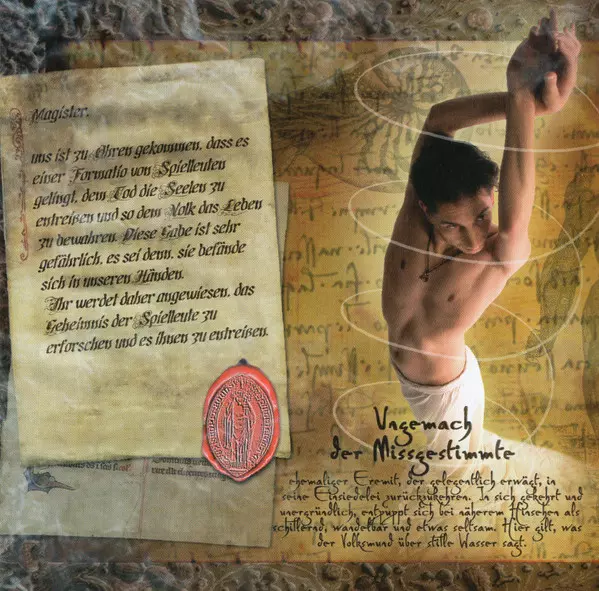 Magister,
uns ist zu Ohren gekommen, dass es
einer Formatio von Spielleuten
gelingt, dem Tod die Seelen zu
entreißen und so dem Volk das Leben
zu bewahren. Diese Gabe ist sehr
gefährlich, es sei denn, sie befände
sich in unseren Händen.
Ihr werdet daher angewiesen, das
Geheimnis der Spielleute zu
erforschen und es ihnen zu entreißen.
Ungemach
der Missgestimmte
ehemaliger Eremit, der gelegentlich erwägt, in
seine Einsiedelei zurückzukehren. In sich gekehrt und
unergründlich, entpuppt sich bei näherem Hinsehen als
schillernd, wandelbar und etwas seltsam. Hier gilt, was
der Volksmund über stille Wasser sagt.